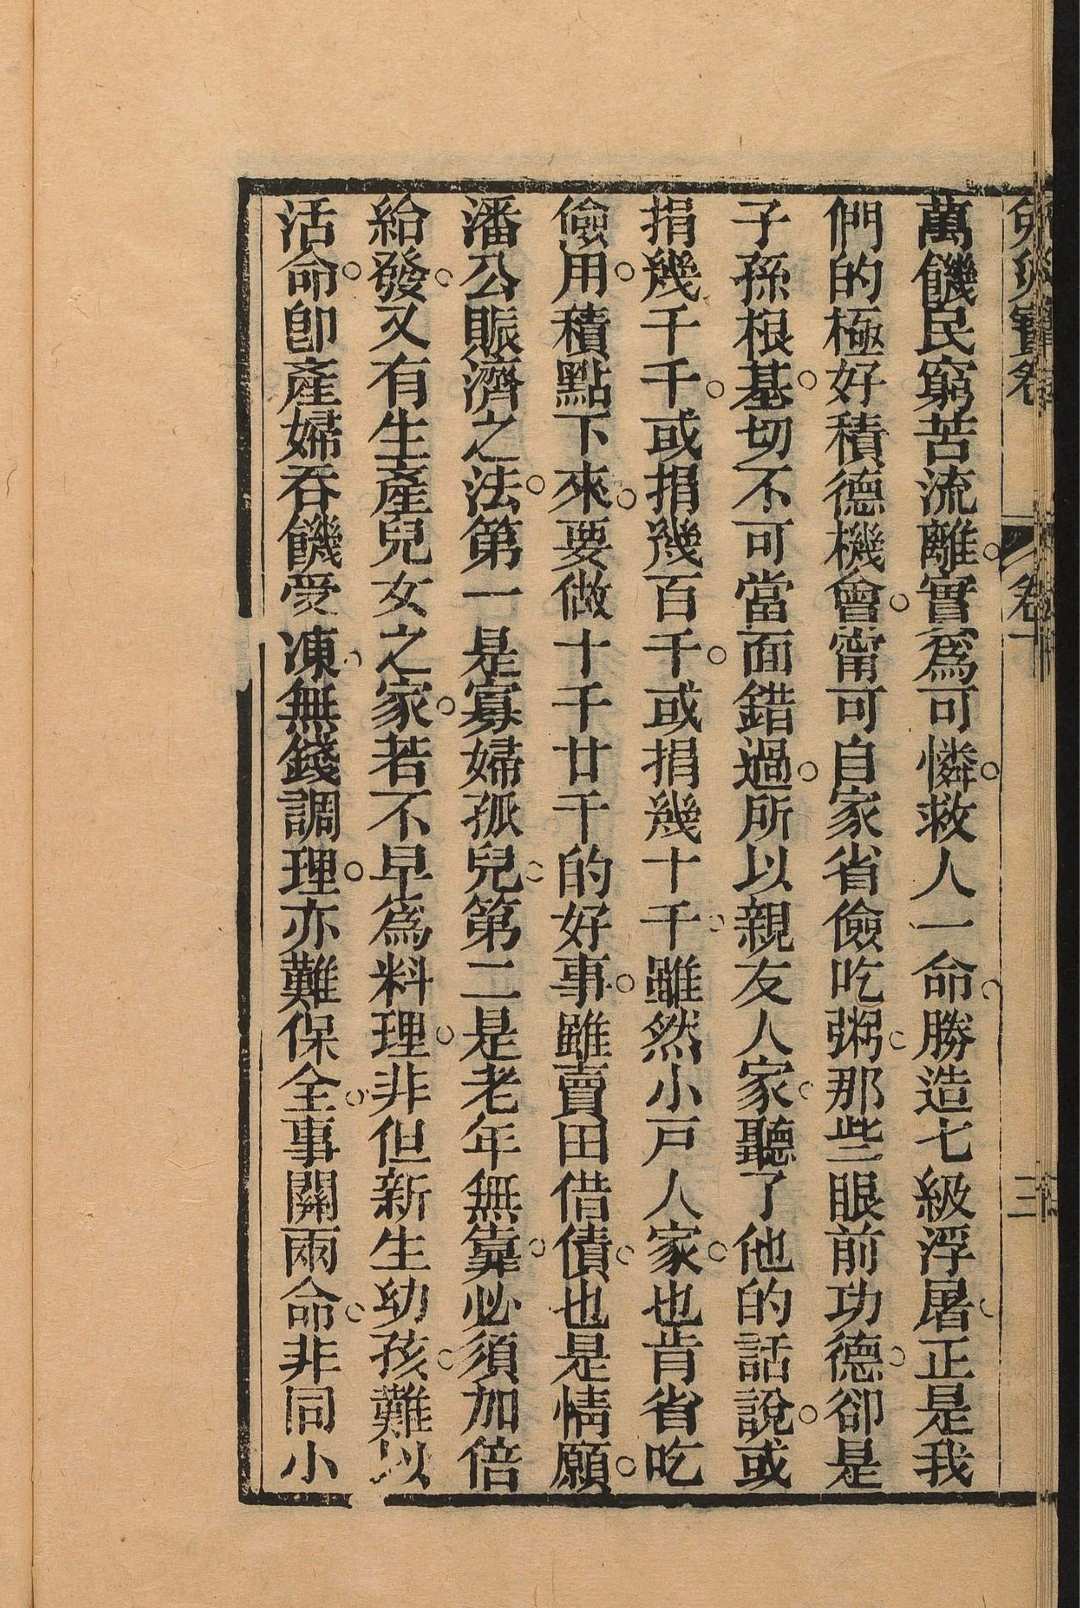 萬饑民窮苦流離。實爲可憐。救人一命。勝造七級浮屠。正是我
們的極好積德機會。甯可自家省儉吃粥。那些眼前功德。卻是
子孫根基。切不可當面錯過。所以親友人家。聽了他的話說。或
捐幾千千。或捐幾百千。或捐幾十千。雖然小戸人家。也肯省吃
儉用。積點下來。要做十千廿千的好事。雖賣田借債。也是情願。
潘公賑濟之法。第一是寡婦孤兒。第二是老年無靠。必須加倍
給發。又有生產兒女之家。若不早爲料理。非但新生幼孩。難以
活命。卽產婦吞饑受凍。無錢調理。亦難保全。事關兩命。非同小
卷十
三